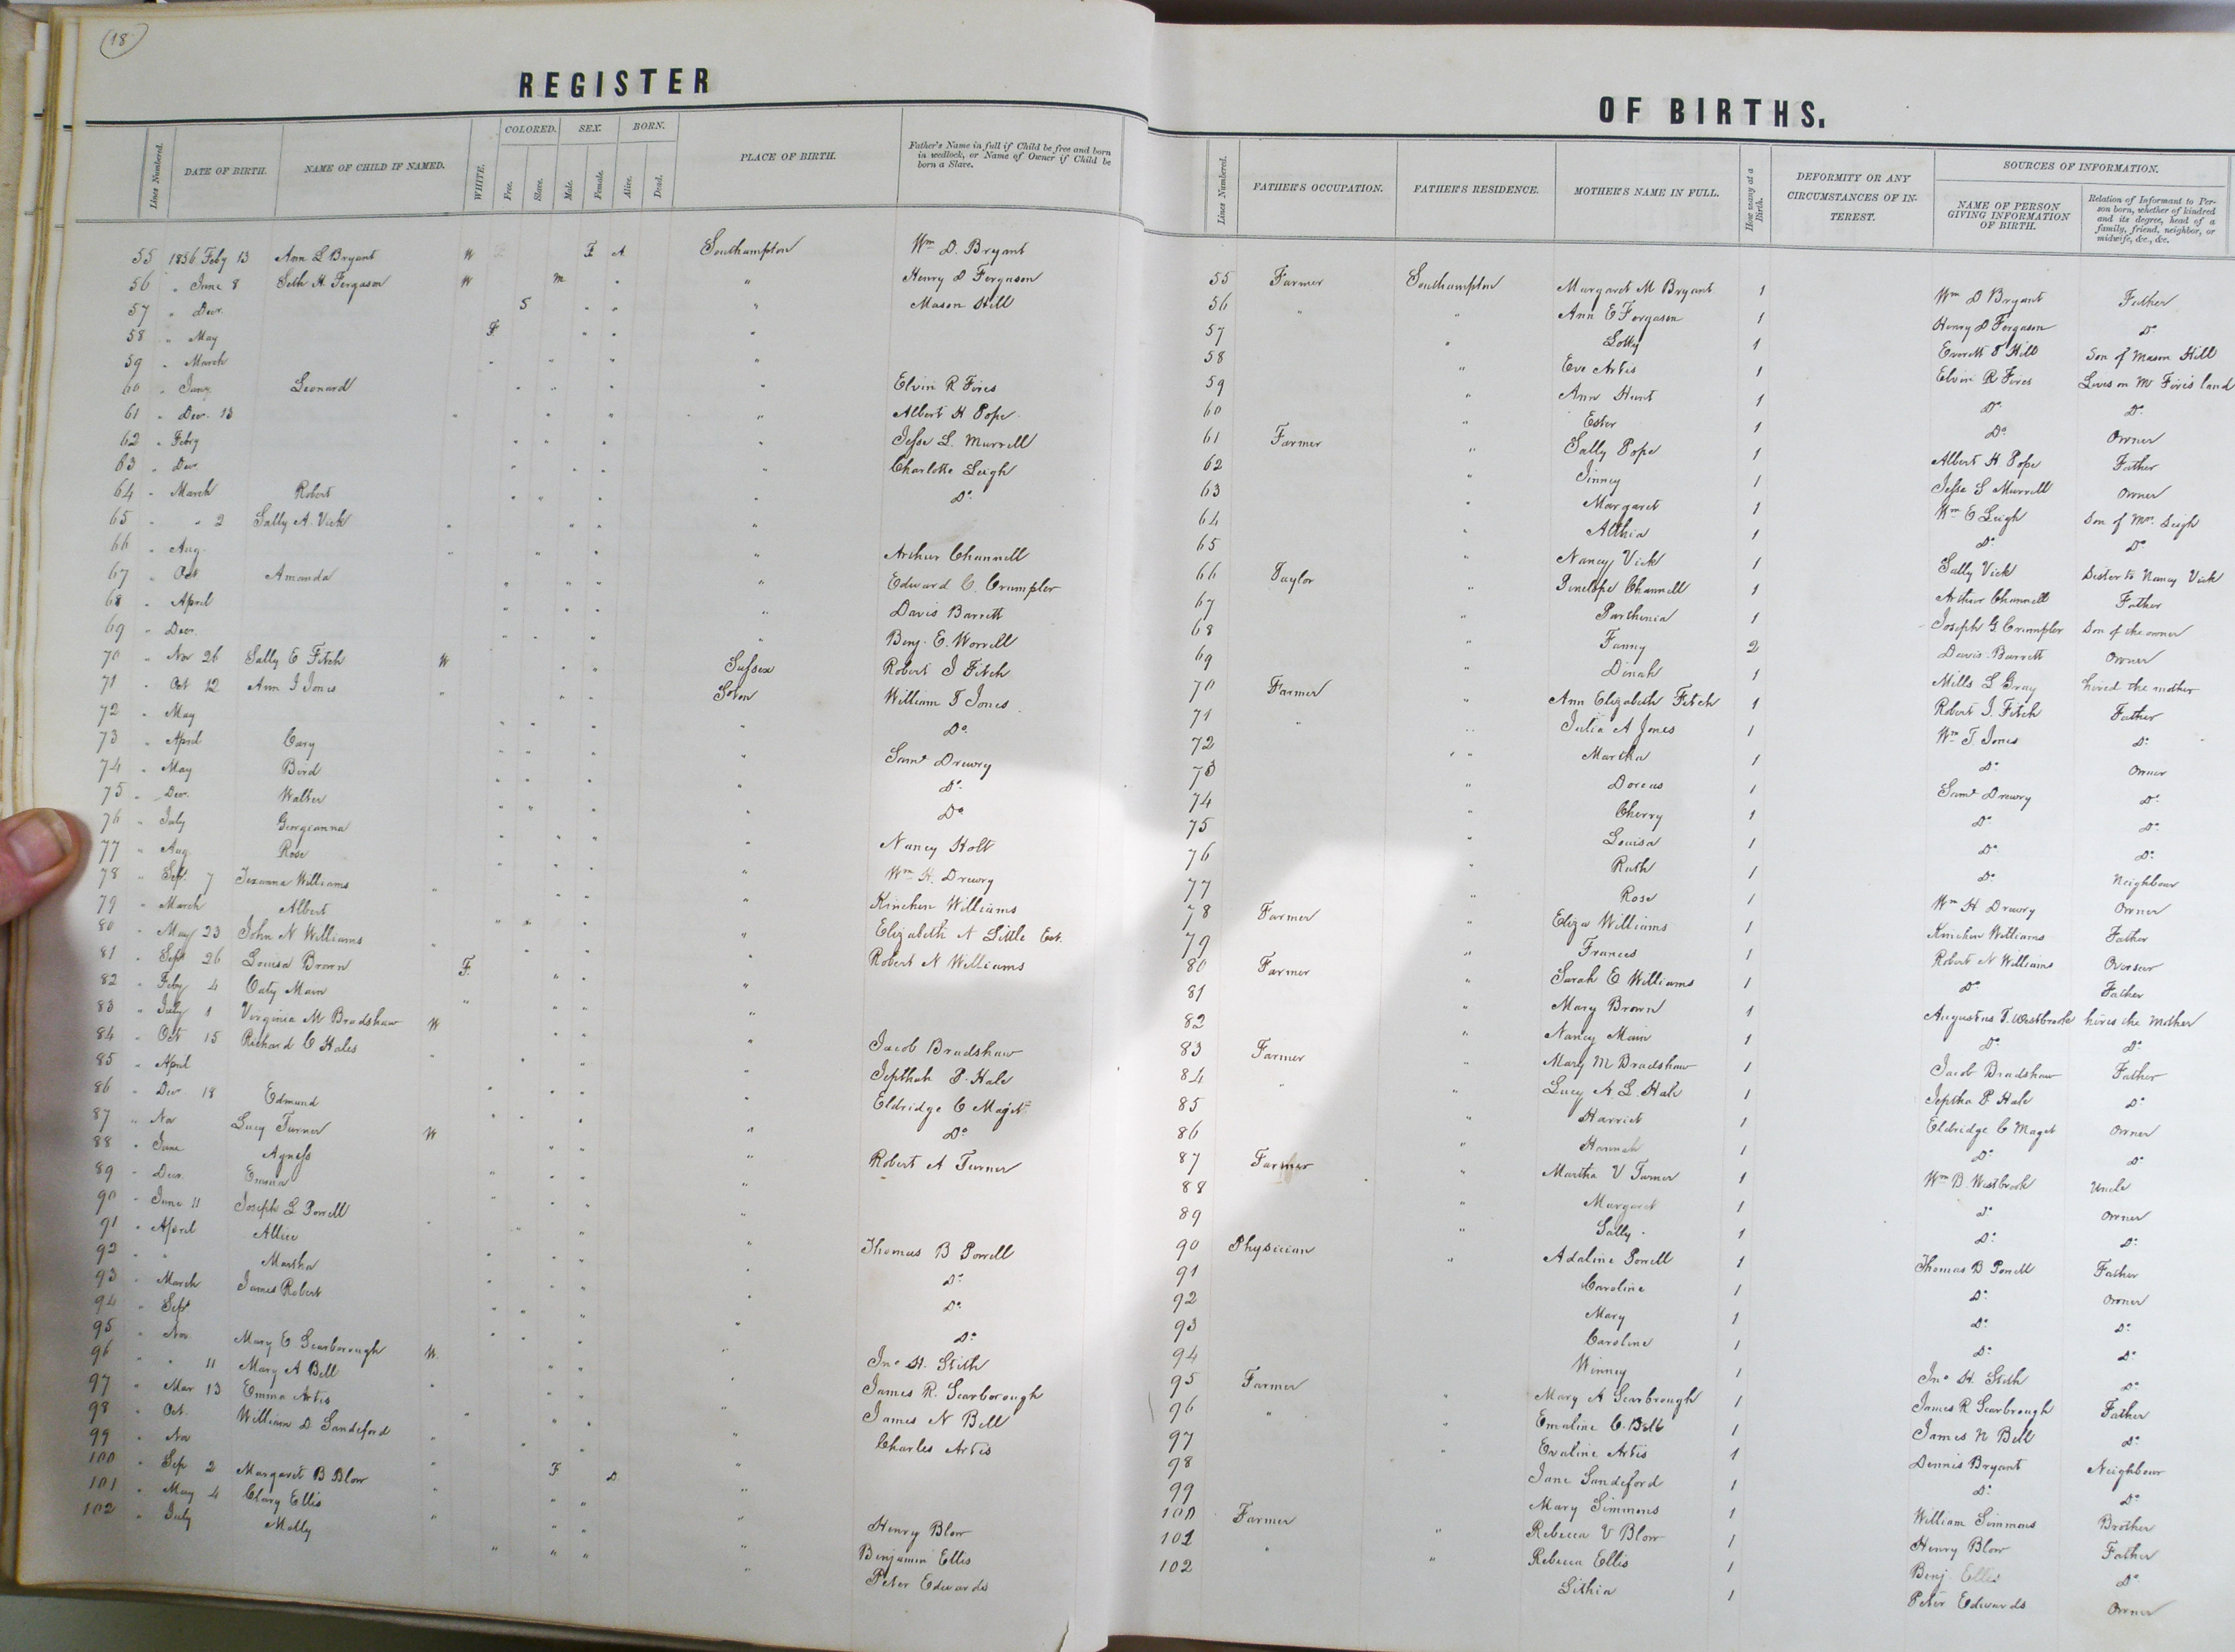 18
REGISTER
Lines Numbered. DATE OF BIRTH. NAME OF CHILD IF NAMED. WHITE. COLORED. Free. Slave. SEX. Male. Female. BORN. Alive. Dead. PLACE OF BIRTH. Father's Name in full if Child be free and born in wedlock, or Name of Owner if Child be born a Slave.
55 1856 Feby 13 Ann L Bryant W F A Southampton Wm D. Bryant
56 " June 8 Seth H. Fergason W m " " Henry D Fergason
57 " Decr. S " " " Mason Hill
58 " May F " " "
59 " March " " " "
60 " Jany Leonard " " " " Elvin R Fires
61 " Decr. 13 " " " " Albert H Pope
62 " Febry " " " " Jesse L. Murrell
63 " Decr. " " " " Charlotte Leigh
64 " March Robert " " " " Do
65 " " 2 Sally A. Vick " " " "
66 " Aug. " " " " Arthur Channell
67 " Oct Amanda " " " " Edward C. Crumpler
68 " April " " " " Davis Barrett
69 " Decr. " " " " Benj. E. Worrell
70 " Nov 26 Sally E Fitch W " " Sussex Robert J Fitch
71 " Oct 12 Ann J Jones " " " Soton William T Jones
72 " May " " " " Do
73 " April Cary " " " " Saml Drewry
74 " May Bird " " " " Do
75 " Decr. Walter " " " " Do
76 " July Georgeanna " " " " Nancy Holt
77 " Aug. Rose " " " " Wm H. Drewry
78 " Sept. 7 Williams " " " " Kinchen Williams
79 " March Albert " " " " Elizabeth N Little Est.
80 " May 23 John N Williams " " " " Robert N Williams
81 " Sept 26 Louisa Brown F " " "
82 " Feby 4 Caty Main " " " "
83 " July 1 Virginia M Bradshaw W " " " Jacob Bradshaw
84 " Oct 15 Richard C Hales " " " " Jepthah P. Hale
85 " April " " " " Eldridge C Maget
86 " Decr. 18 Edmund " " " " Do
87 " Nov Lucy Turner W " " " Robert A Turner
88 " June Agness " " " "
89 " Decr. Emma " " " "
90 " June 11 Joseph L Powell " " " " Thomas B Powell
91 " April Allice " " " " Do
92 " " Martha " " " " Do
93 " March James Robert " " " " Do
94 " Sept. " " " " Jno H. Stith
95 " Nov Mary E. Scarborough W. " " " James R. Scarborough
96 " " 11 Mary A Bell " " " " James N Bell
97 " Mar 13 Emma Artis " " " " Charles Artis
98 " Oct. William D Sandeford " " " "
99 " Nov " F D "
100 " Sep 2 Margaret B Blow " " " " Henry Blow
101 " May 4 Clary Ellis " " " " Benjamin Ellis
102 " July Molly " " " " Peter Edwards
OF BIRTHS.
Lines Numbered. FATHER'S OCCUPATION. FATHER'S RESIDENCE. MOTHER'S NAME IN FULL. How many at a Birth. DEFORMITY OR ANY CIRCUMSTANCES OF INTEREST. SOURCES OF INFORMATION. NAME OF PERSON GIVING INFORMATION OF BIRTH. Relation of Informant to Person born, whether of kindred and its degree, head of a family, friend, neighbor, or midwife, &c., &c.
55 Farmer Southampton Margaret M Bryant 1 Wm D Bryant Father
56 " " Ann E Fergason 1 Henry D Fergason Do
57 " Lotty 1 Everett T Hill Son of Mason Hill
58 " Eve Artis 1 Elvin R Fires Lives on Mr Fires land
59 " Ann Hunt 1 Do Do
60 " Ester 1 Do Owner
61 Farmer " Sally Pope 1 Albert H Pope Father
62 " Jinney 1 Jesse L Murrell Owner
63 " Margaret 1 Wm E Leigh Son of Mrs. Leigh
64 " Althia 1 Do Do
65 " Nancy Vick 1 Sally Vick Sister to Nancy Vick
66 Taylor " Penelope Channell 1 Arthur Channell Father
67 " Parthenia 1 Joseph G. Crumpler Son of the owner
68 " Fanny 2 Davis Barrett Owner
69 " Dinah 1 Mills L Gray hired the mother
70 Farmer " Ann Elizabeth Fitch 1 Robert J. Fitch Father
71 " " Julia A Jones 1 Wm T. Jones Do
72 " Martha 1 Do Owner
73 " Dorcus 1 Saml Drewry Do
74 " Cherry 1 Do Do
75 " Louisa 1 Do Do
76 " Ruth 1 Do Neighbour
77 " Rose 1 Wm H Drewry Owner
78 Farmer " Eliza Williams 1 Kinchen Williams Father
79 " Frances 1 Robert N Williams Overseer
80 Farmer " Sarah E Williams 1 Do Father
81 " Mary Brown 1 Augustus T. Westbrook hires the Mother
82 " Nancy Main 1 Do Do
83 Farmer " Mary M Bradshaw 1 Jacob Bradshaw Father
84 " " Lucy A. L. Hale 1 Jeptha P Hale Do
85 " Harriet 1 Eldridge C Maget Owner
86 " Hannah 1 Do Do
87 Farmer " Martha V Turner 1 Wm B. Westbrook Uncle
88 " Margaret 1 Do Owner
89 " Sally 1 Do Do
90 Physician " Adaline Powell 1 Thomas B Powell Father
91 Caroline 1 Do Owner
92 Mary 1 Do Do
93 Caroline 1 Do Do
94 Winney 1 Jno H. Stith Do
95 Farmer " Mary A Scarbrough 1 James R Scarbrough Father
96 " " Emaline C. Bell 1 James N Bell Do
97 " Evaline Artis 1 Dennis Bryant Neighbour
98 Jane Sandeford 1 Do Do
99 Mary Simmons 1 William Simmons Brother
100 Farmer " Rebecca V Blow 1 Henry Blow Father
101 " " Rebecca Ellis 1 Benj. Ellis Do
102 Lithia 1 Peter Edwards Owner